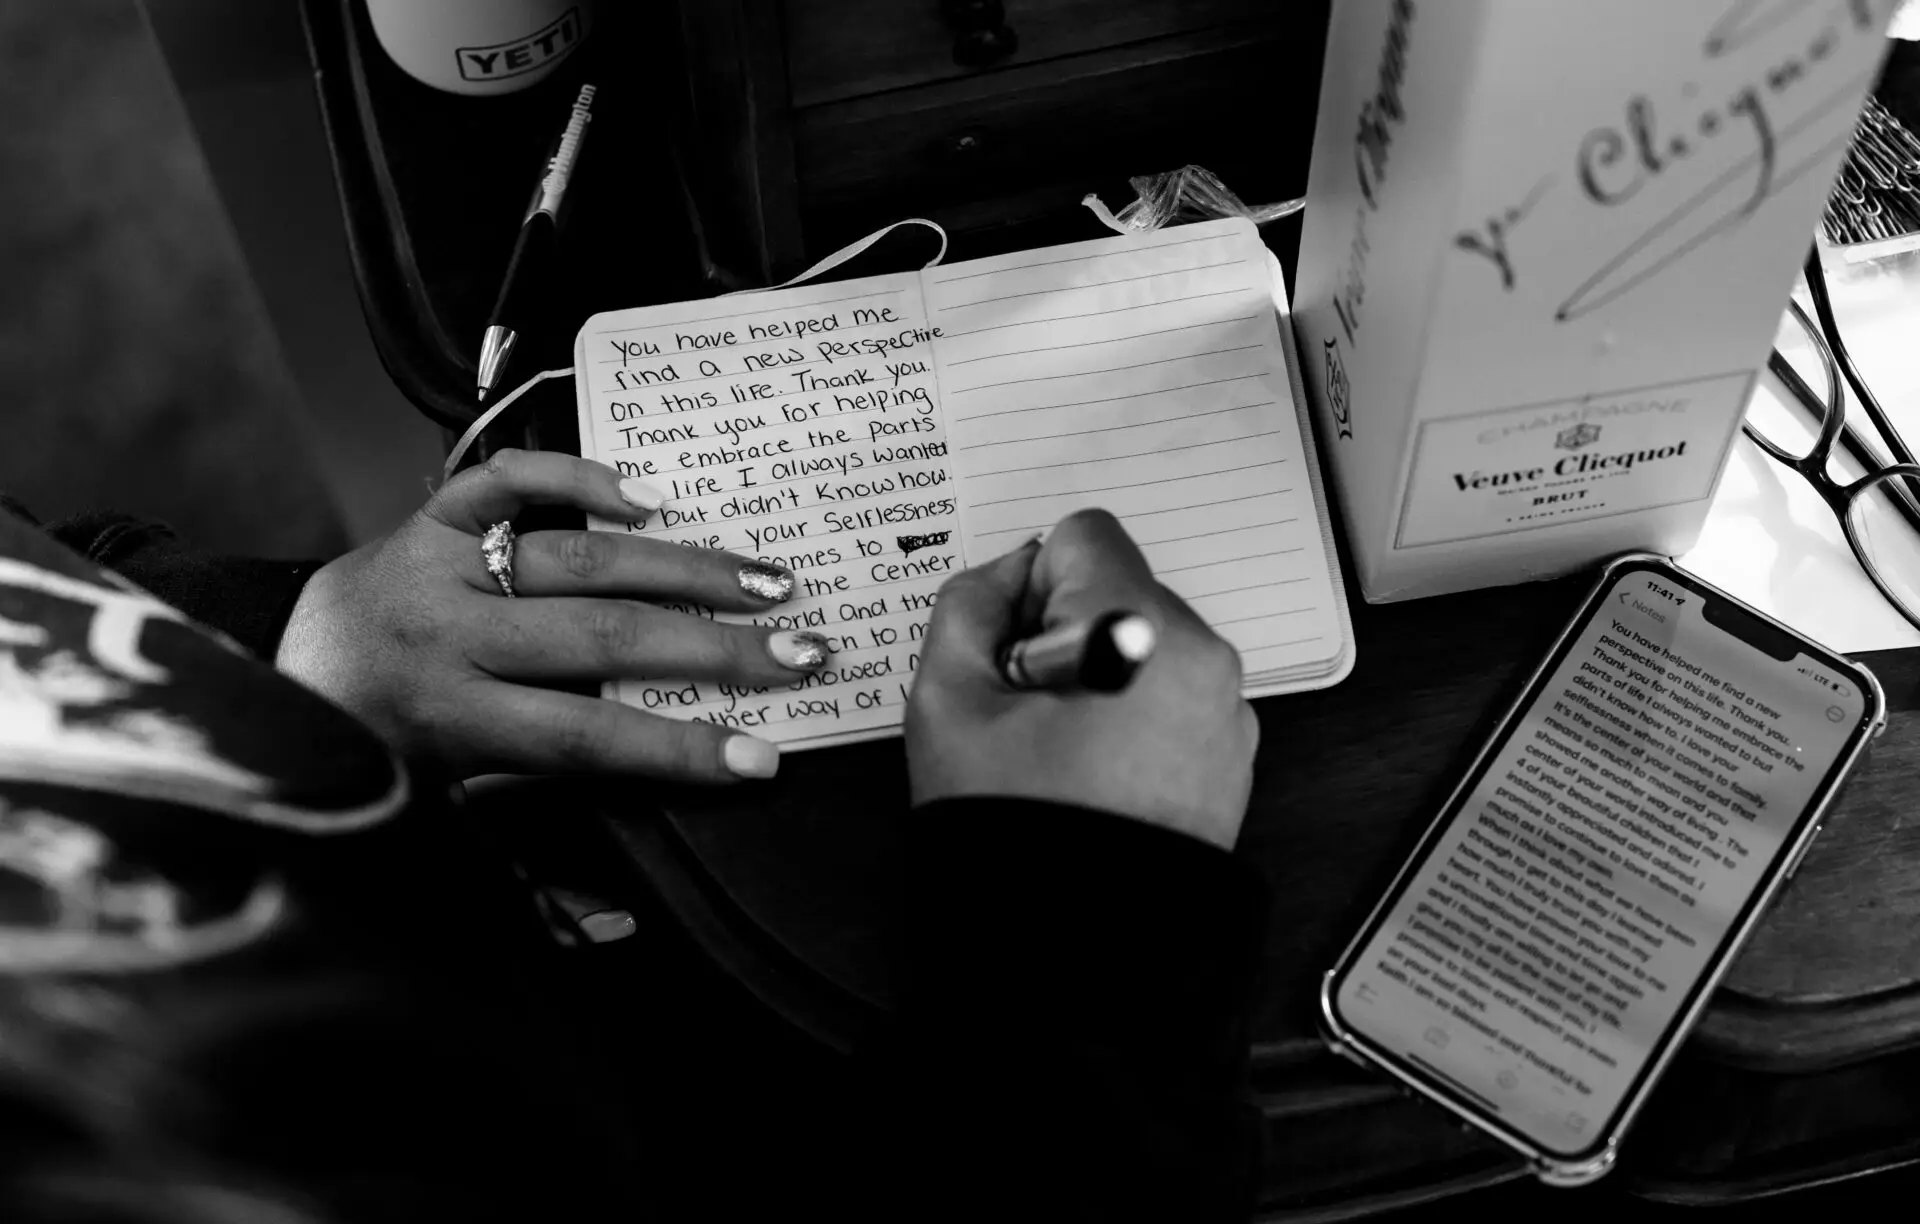 YETI
Huntington
You have helped me
find a new perspective
on this life. Thank you.
Thank you for helping
me embrace the parts
life I always wanted
to but didn't know how.
love your selflessness
comes to
the center
world and tha
ch to m
and you showed m
other way of l
Veuve Clicquot
CHAMPAGNE
Veuve Clicquot
BRUT
11:41
LTE
Notes
You have helped me find a new
perspective on this life. Thank you.
Thank you for helping me embrace the
parts of life I always wanted to but
didn't know how to. I love your
selflessness when it comes to family.
It's the center of your world and that
means so much to me and you
showed me another way of living. The
center of your world introduced me to
4 of your beautiful children that I
instantly appreciated and adored. I
promise to continue to love them as
much as I love my own.
When I think about what we have been
through to get to this day I learned
how much I truly trust you with my
heart. You have proven your love to me
is unconditional time and time again
and I finally am willing to let go and
give you my all for the rest of my life.
I promise to be patient with you, I
promise to listen and respect you even
on your bad days.
Keith I am so blessed and thankful for